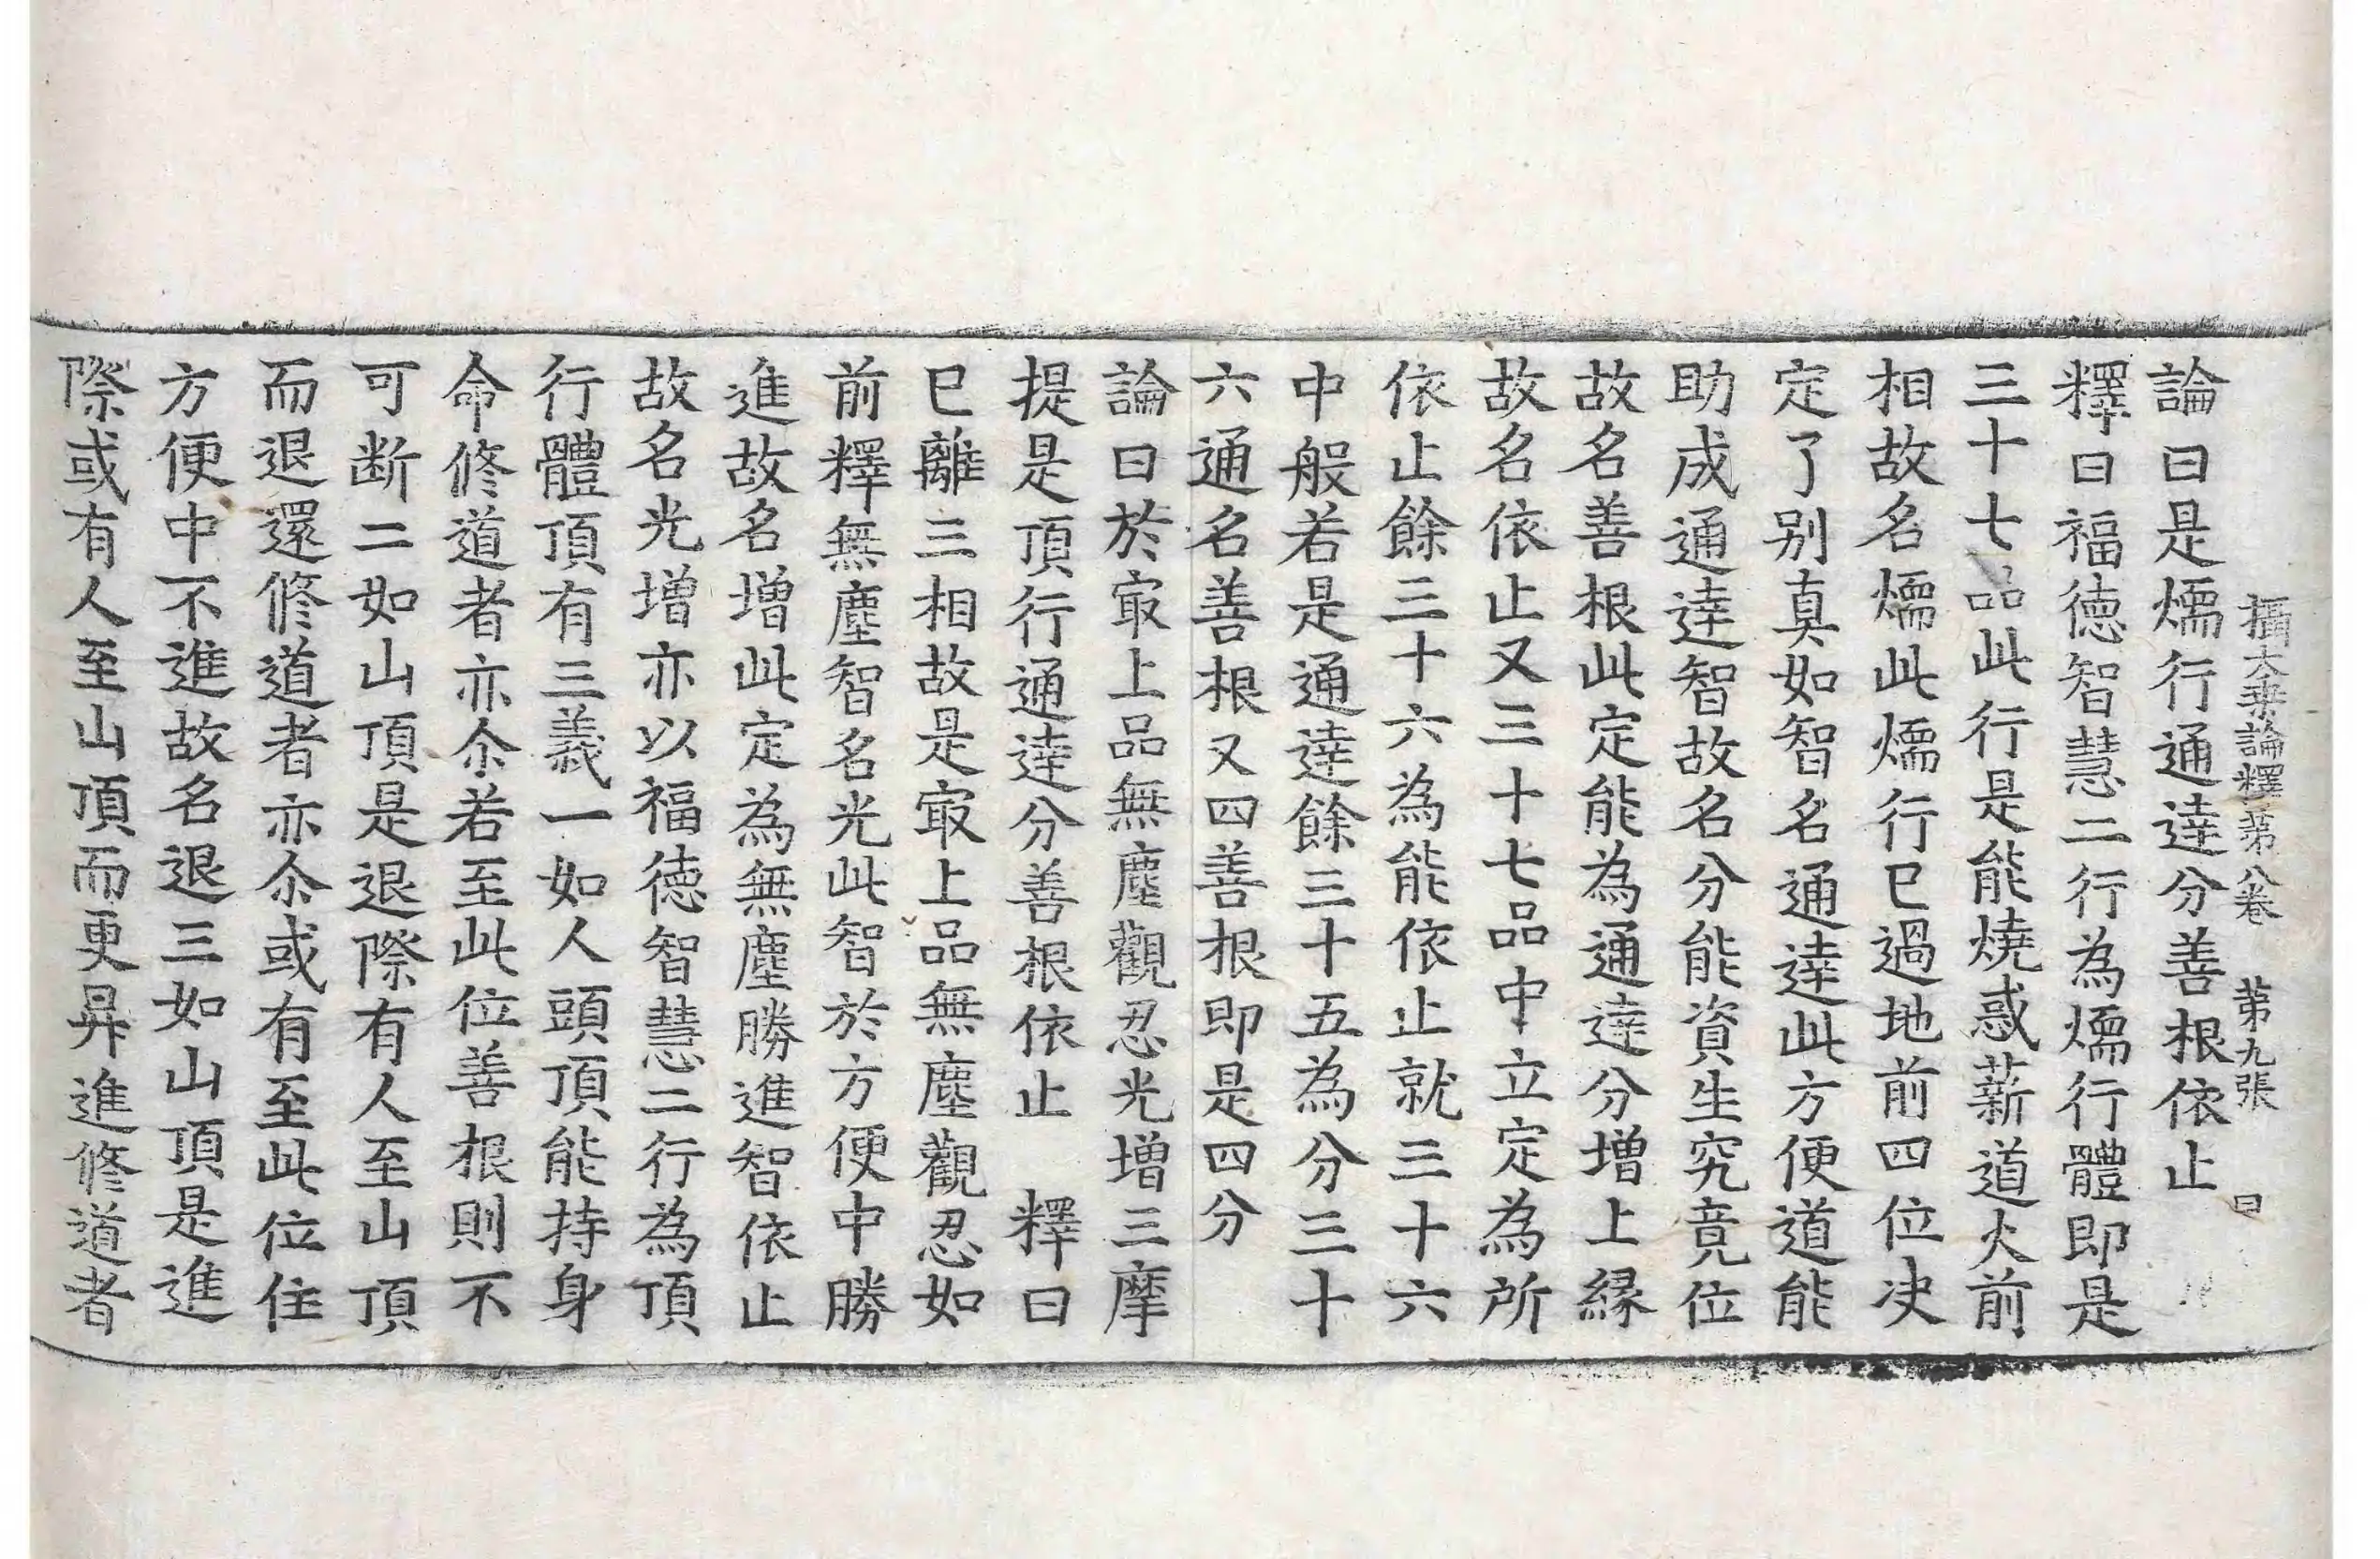 攝大乗論釋第八卷 第九張 曰
論曰是煗行通達分善根依止
釋曰福德智慧二行為煗行體即是
三十七品此行是能燒惑薪道火前
相故名煗此煗行已過地前四位决
定了别真如智名通達此方便道能
助成通達智故名分能資生究竟位
故名善根此定能為通達分增上縁
故名依止又三十七品中立定為所
依止餘三十六為能依止就三十六
中般若是通達餘三十五為分三十
六通名善根又四善根即是四分
論曰於㝡上品無塵觀忍光增三摩
提是頂行通達分善根依止 釋曰
已離三相故是㝡上品無塵觀忍如
前釋無塵智名光此智於方便中勝
進故名增此定為無塵勝進智依止
故名光增亦以福德智慧二行為頂
行體頂有三義一如人頭頂能持身
命修道者亦尒若至此位善根則不
可断二如山頂是退際有人至山頂
而退還修道者亦尒或有至此位住
方便中不進故名退三如山頂是進
際或有人至山頂而更昇進修道者